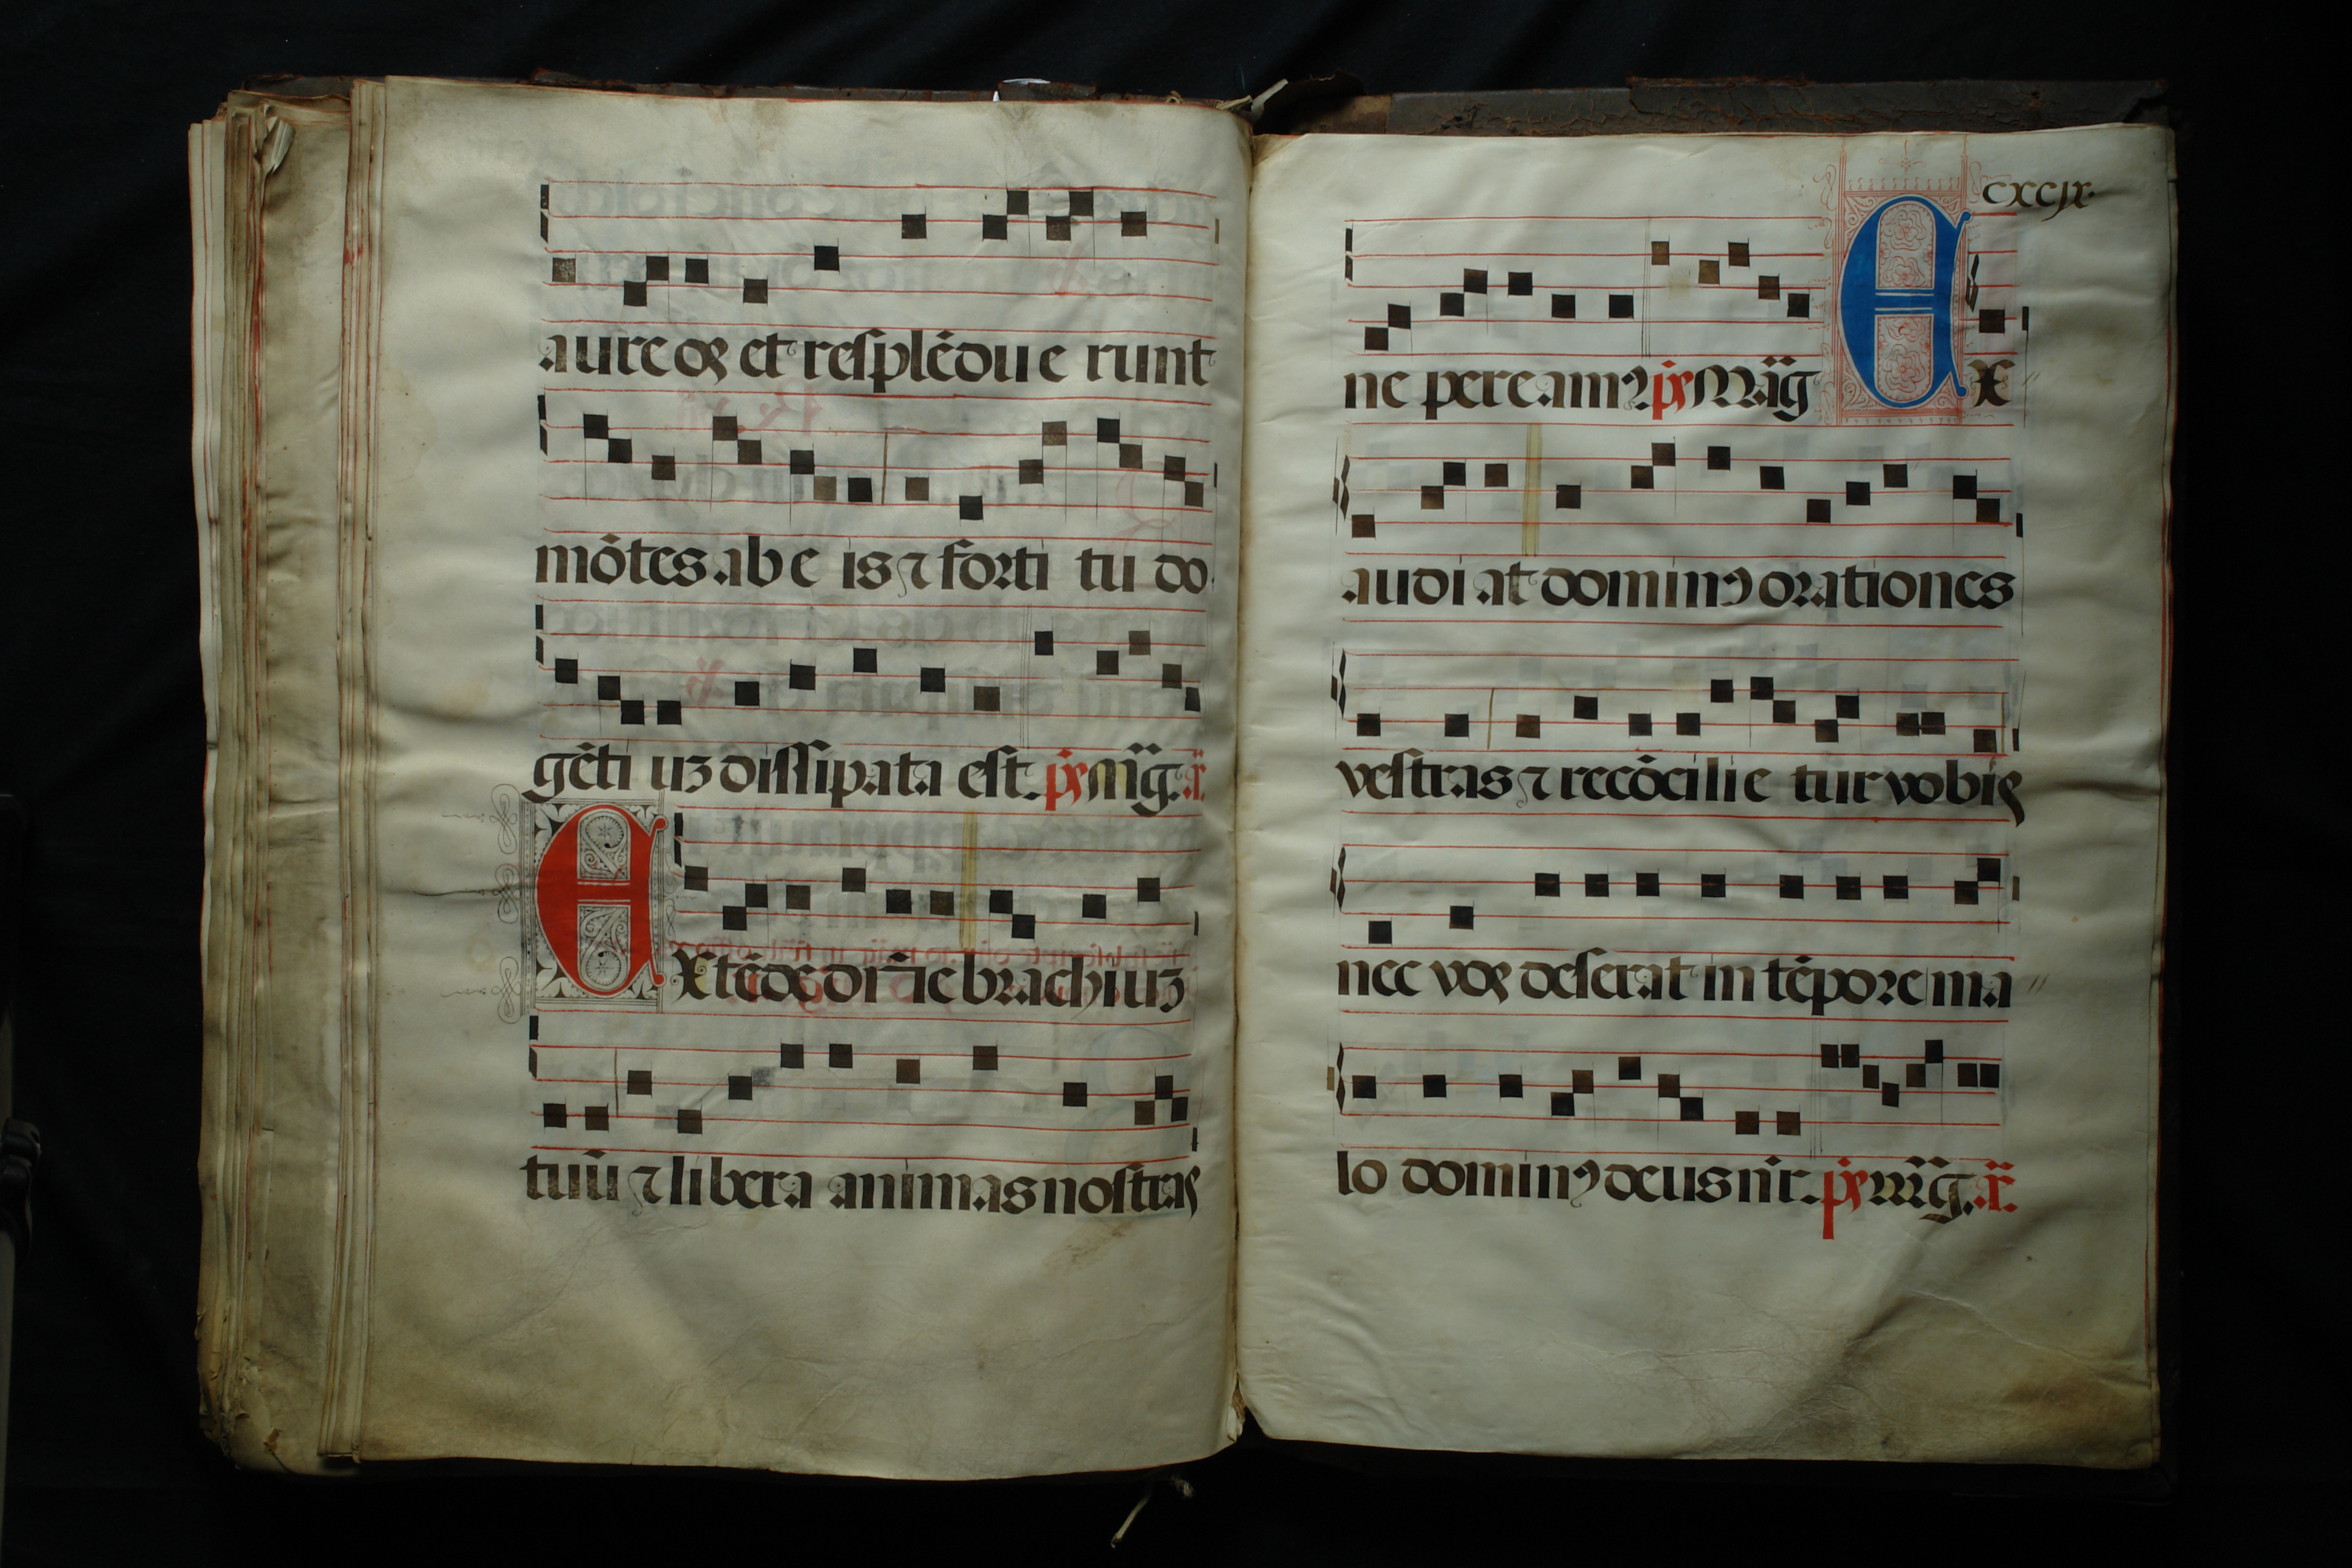 aureos et resplēdue runt
mōtes ab e is ⁊ forti tu do
gēti uꝫ dissipata est. ps Mag̃. ã.
Extēde dñe brachiuꝫ
tuū ⁊ libera animas nostras
cxcix
ne pereamꝰ ps Mag̃ Ex
audiat dominꝰ orationes
vestras ⁊ recōcilie tur vobis
nec vos deserat in tēpore ma
lo dominꝰ deus nr̃. ps mag̃. ã.